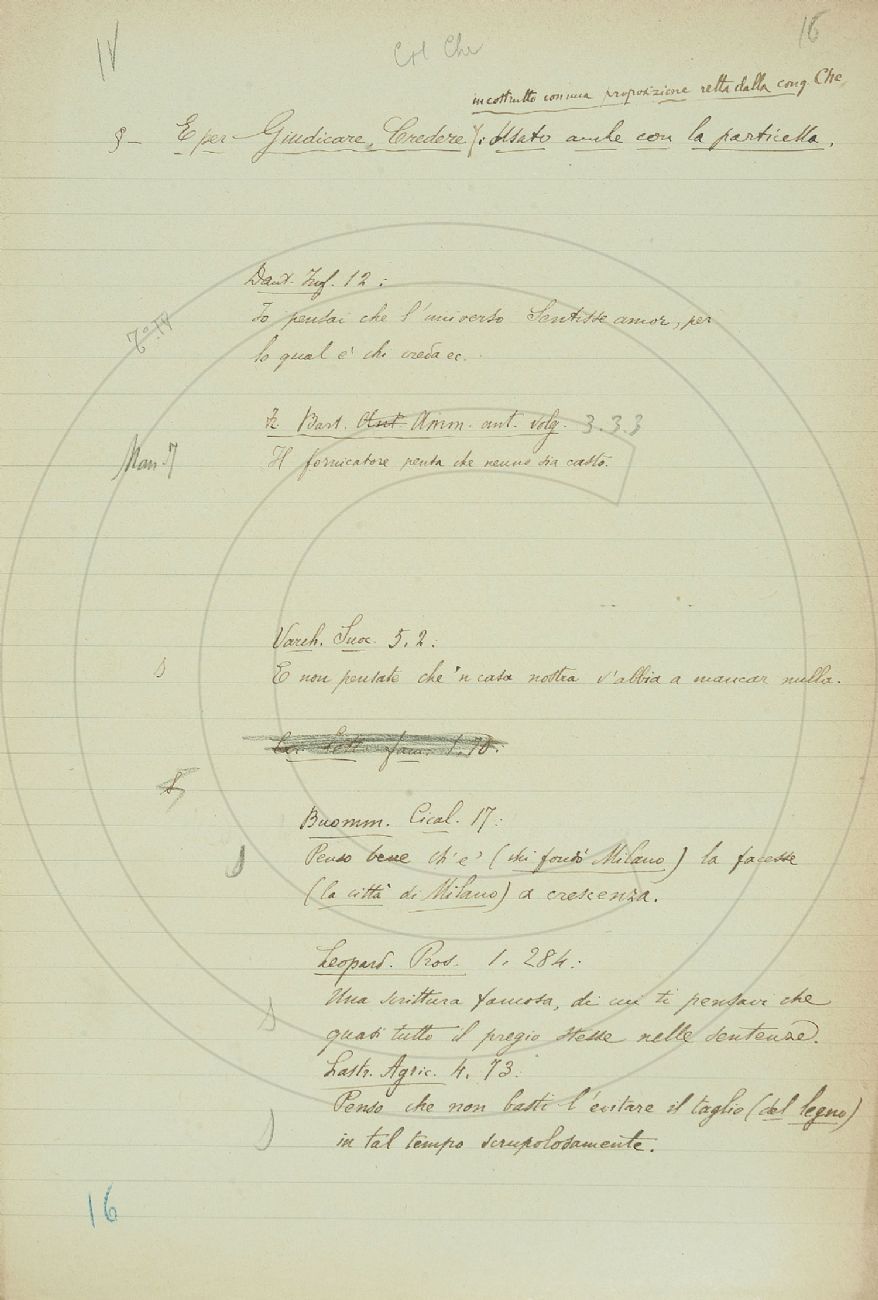 IV
16
Col Che
in costrutto con una proposizione retta dalla cong. Che
§ — E per Giudicare, Credere; Usato anche con la particella,
Dant. Inf. 12:
Io pensai che l'universo Sentisse amor, per
lo qual è chi creda ec.
7° IV
Fr. Bart. Ant Amm. ant. volg. 3.3.3
Man. 7
Il fornicatore pensa che neuno sia casto.
Varch. Suoc. 5, 2:
E non pensate che 'n casa nostra v'abbia a mancar nulla.
fam. 1. 10:
Buomm. Cical. 17:
Penso bene ch'e' (chi fondò Milano) la facesse
(la città di Milano) a crescenza.
Leopard. Pros. 1, 284:
Una scrittura famosa, di cui ti pensavi che
quasi tutto il pregio stesse nelle sentenze.
Lastr. Agric. 4, 73:
Penso che non basti l'evitare il taglio (del legno)
in tal tempo scrupolosamente.
16